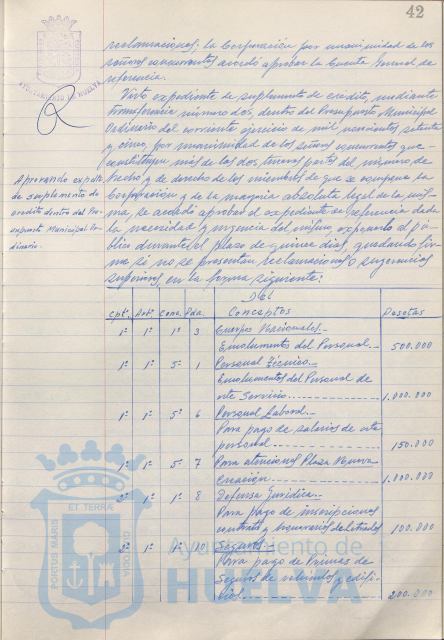 42
AYUNTAMIENTO DE HUELVA
reclamaciones, la Corporación por unanimidad de los
señores concurrentes acordó aprobar la Cuenta General de
referencia.
Visto expediente de suplemento de crédito, mediante
transferencia número dos, dentro del Presupuesto Municipal
Ordinario del corriente ejercicio de mil novecientos setenta
y cinco, por unanimidad de los señores concurrentes que
constituyen más de las dos terceras partes del número de
hecho y de derecho de los miembros de que se compone la
Corporación y de la mayoría absoluta legal de la mis-
ma, se acuerda aprobar el expediente de referencia dada
la necesidad y urgencia del mismo, exponerlo al pú-
blico durante el plazo de quince días, quedando fir-
me si no se presentan reclamaciones o sugerencias
superiores, en la forma siguiente:
Aprobando expte.
de suplemento de
credito dentro del Pre-
supuesto Municipal Or-
dinario.
Cptº. Artº. Conc. Pda. Conceptos Pesetas
1º 1º 1º 3 Cuerpos Nacionales.-
Emolumentos del Personal.- 500.000
1º 1º 5º 1 Personal Técnico.-
Emolumentos del Personal de
este Servicio 1.000.000
1º 1º 5º 6 Personal Laboral.-
Para pago de salarios de este
personal 150.000
1º 1º 5º 7 Para atenciones Plazas Nueva
creación 1.000.000
2º 1º 1º 8 Defensa Jurídica.-
Para pago de inscripciones
contratos y honorarios de Letrados 100.000
2º 1º 1º 10 Seguros.-
Para pago de Primas de
Seguros de vehículos y edifi-
cios 200.000
PORTUS MARIS
ET TERRAE
CUSTODIA
Ayuntamiento de
HUELVA